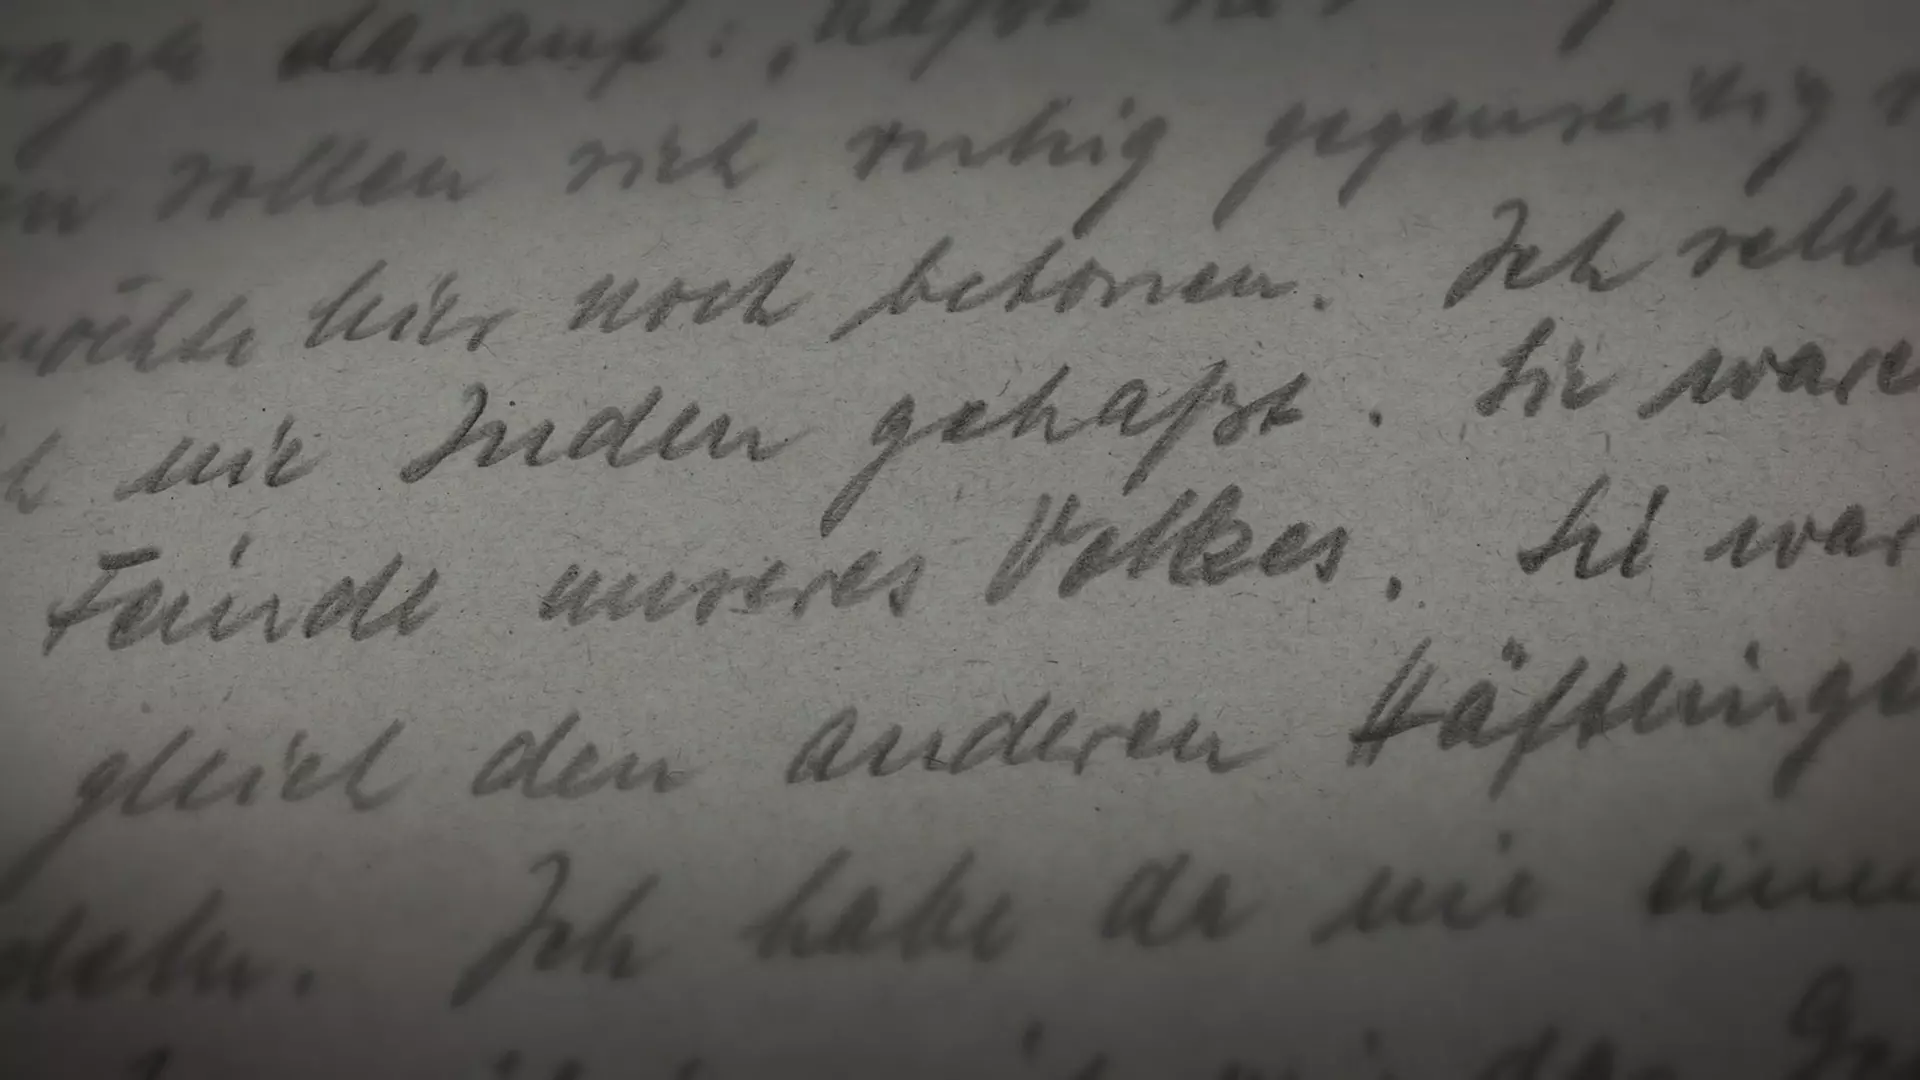 darauf:
sollen sich ruhig gegenseitig
möchte hier noch betonen. Ich selbs
nie Juden gehaßt. Sie ware
Feinde unseres Volkes. Sie war
gleich den anderen Häftlinge
deln. Ich habe da nie einen